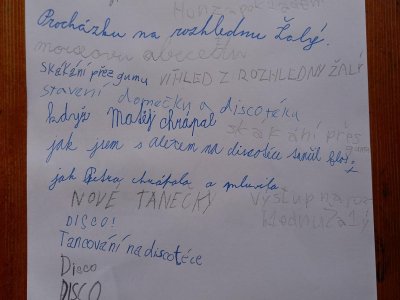 Procházku na rozhlednu Žalý.
skákání přez gumu VÍHLED Z ROZHLEDNY ŽALÝ
stavení domečku a discotéku
když Matěj chrápal
skákání přes
jak jsem s alexem na discotéce tančil
jak Petra chrápala a mluvila
NOVÉ TANEČKY Výstup na roz
DISCO!
Tancování na discotéce
Disco
DISCO